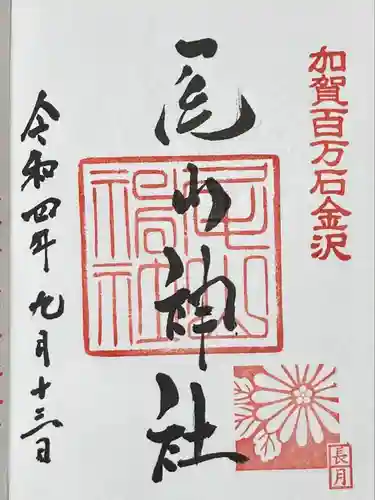 加賀百万石金沢
尾山神社
尾山神社
令和四年九月十三日
長月